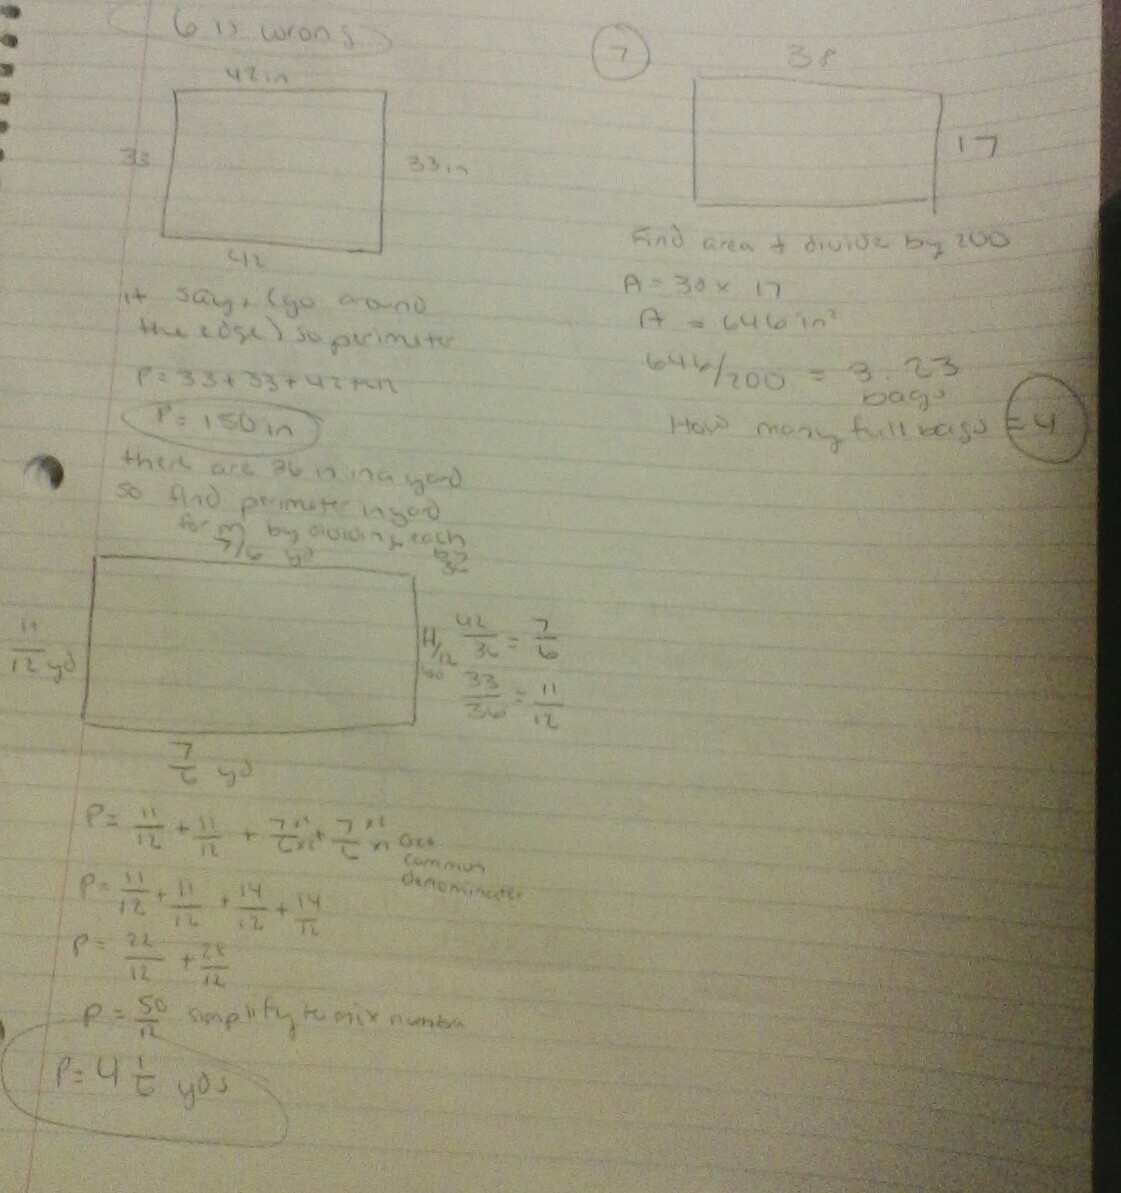 6 is wrong
42 in
33
33 in
42
it says (go around
the edge) so perimeter
P = 33 + 33 + 42 + 42
P = 150 in
there are 36 in in a yard
so find perimeter in yard
for m by dividing each
by 36
7/6 yd
11/12 yd
11/12
42/36 = 7/6
33/36 = 11/12
7/6 yd
P = 11/12 + 11/12 + 7/6 x2 x2 + 7/6 x2 Get
common
denominater
P = 11/12 + 11/12 + 14/12 + 14/12
P = 22/12 + 28/12
P = 50/12 simplify to mix number
P = 4 1/6 yds
7
38
17
Find area & divide by 200
A = 38 x 17
A = 646 in²
646/200 = 3.23
bags
How many full bags = 4